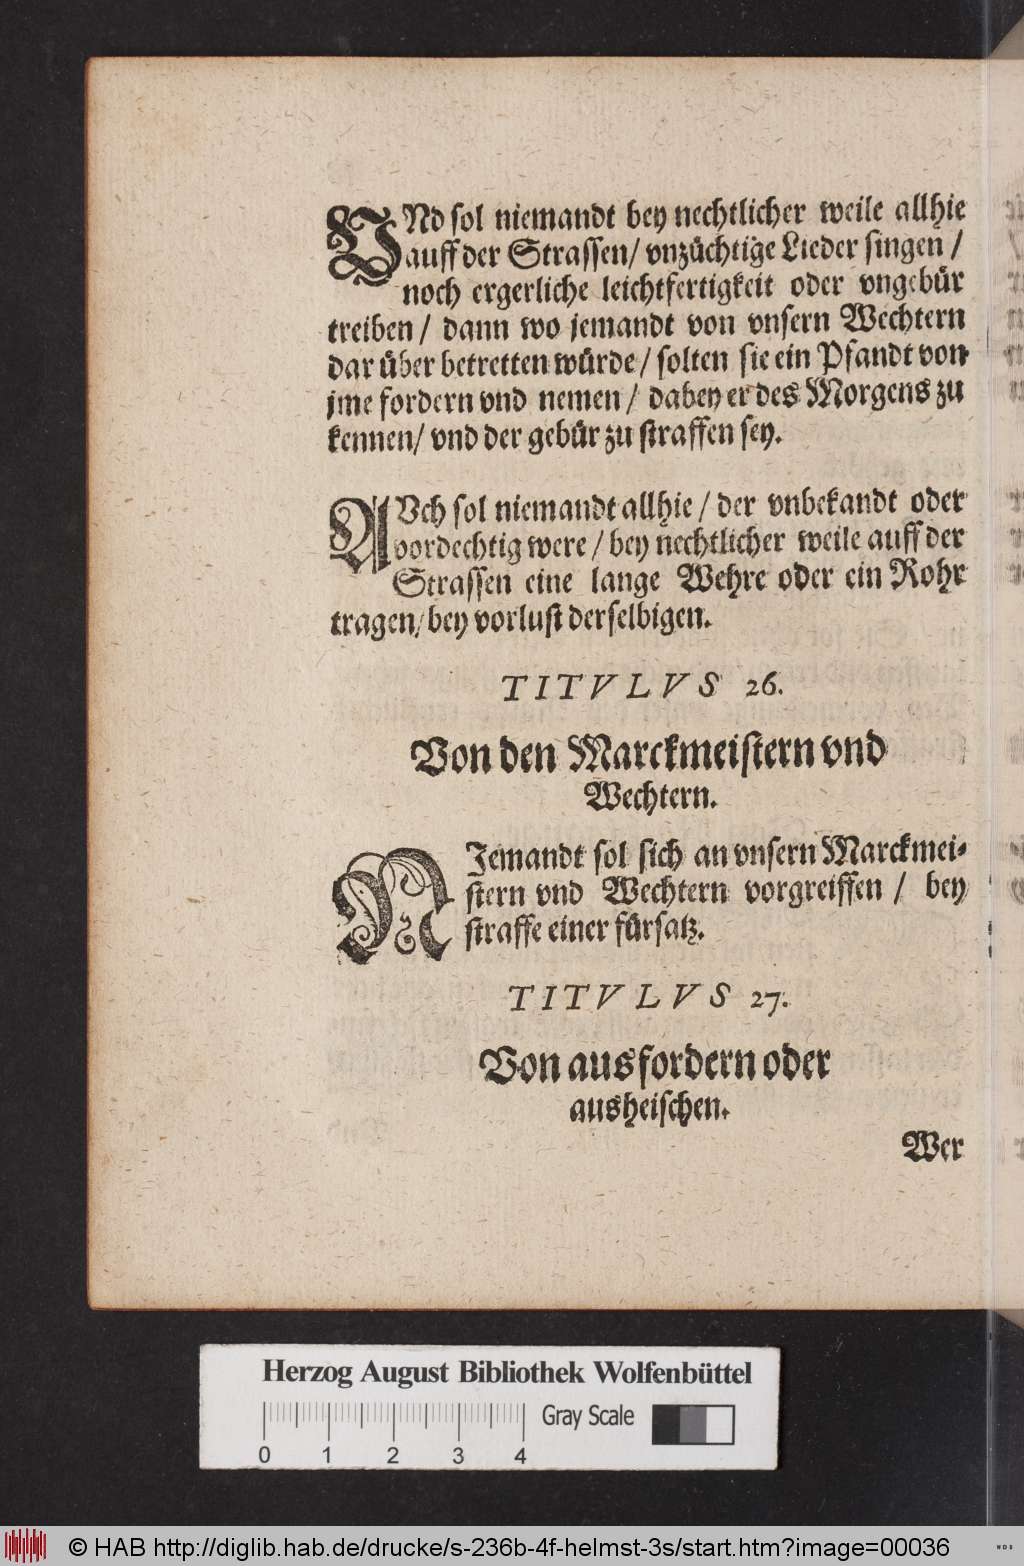 VNd sol niemandt bey nechtlicher weile allhie
auff der Strassen/ vnzüchtige Lieder singen /
noch ergerliche leichtfertigkeit oder vngebür
treiben / dann wo jemandt von vnsern Wechtern
dar über betretten würde / solten sie ein Pfandt von
jme fordern vnd nemen / dabey er des Morgens zu
kennen/ vnd der gebür zu straffen sey.
AVch sol niemandt allhie / der vnbekandt oder
vordechtig were / bey nechtlicher weile auff der
Strassen eine lange Wehre oder ein Rohr
tragen/ bey vorlust derselbigen.
TITVLVS 26.
Von den Marckmeistern vnd
Wechtern.
NJemandt sol sich an vnsern Marckmei-
stern vnd Wechtern vorgreiffen / bey
straffe einer fürsatz.
TITVLVS 27.
Von ausfordern oder
ausheischen.
Wer
Herzog August Bibliothek Wolfenbüttel
Gray Scale
0 1 2 3 4
© HAB http://diglib.hab.de/drucke/s-236b-4f-helmst-3s/start.htm?image=00036